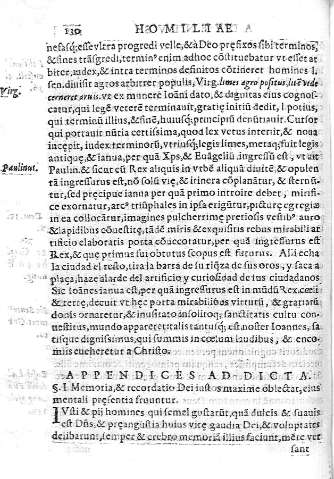 130 HOMILIAE
nefasq; esse vltra progredi velle, & à Deo præfixos sibi terminos,
& fines trãsgredi, terminº enim ad hoc cõstituebatur vt esset ar
biter, iudex, & intra terminos definitos cõtineret homines
Virg. fines diuisit agros arbitrer populis, Virg. limes agro positus, litẽ vt dis
cerneret aruis. vt ex munere Ioãni dato, & dignitas eius cognos
catur, qui legẽ veterẽ terminauit, gratiæ initiũ dedit, l potius,
qui terminũ illius, & finẽ, huiusq; principiũ denũtiauit. Cursor
qui portauit nũtia certissima, quod lex vetus interijt, & noua
incepit, index terminorũ, vtriusq; legis limes, meta q; fuit legis
antiquę, & ianua, per quã Xps, & Euãgeliũ ingressũ est, vt ait
Paulinus. Paulin. & sicut cũ Rex aliquis in vrbẽ aliquã diuitẽ, & opulen
tã ingressurus est, nõ solũ viæ, & itinera cõplanãtur, & sternũ
tur, sed præcipue ianua per quã primo introire debet, mirifi-
ce exornatur, arcº triũphales in ipsa erigũtur, picturę egregiæ
in ea collocãtur, imagines pulcherrimę pretiosis vestibº auro
& lapidibus cõuestitę, tãdẽ miris & exquisitis rebus mirabili ar
tificio elaboratis porta cõuecoratur, per quã ingressurus est
Rex, & quę primus sui obtutus scopus est futurus. Alli echa
la ciudad el resto, tira la barra de su riq̃za de sus oros, y saca a
plaça, haze alarde del artificio y curiosidad de sus ciudadanos
Sic Ioãnes ianua est, per quã ingressurus est in mũdũ Rex cœli
& terrę, decuit vt hęc porta mirabilibus virtutũ, & gratiarũ
donis ornaretur, & inusitato insolitoq; sanctitatis cultu con-
uestitus, mundo appareret, talis tantusq; est noster Ioannes, sa
tisque dignissimus, qui summis in cœlum laudibus, & enco-
mijs eueheretur a Christo.
APPENDICES AD DICTA.
§. I Memoria, & recordatio Dei iustos maxime oblectat, eius
mentali præsentia fruuntur.
IVsti & pij homines qui semel gustarũt, quã dulcis & suauis
est Dñs, & præangustia huius vitę gaudia Dei, & voluptates
delibarunt, semper & crebro memoriã illius faciunt, mẽre ver
sant